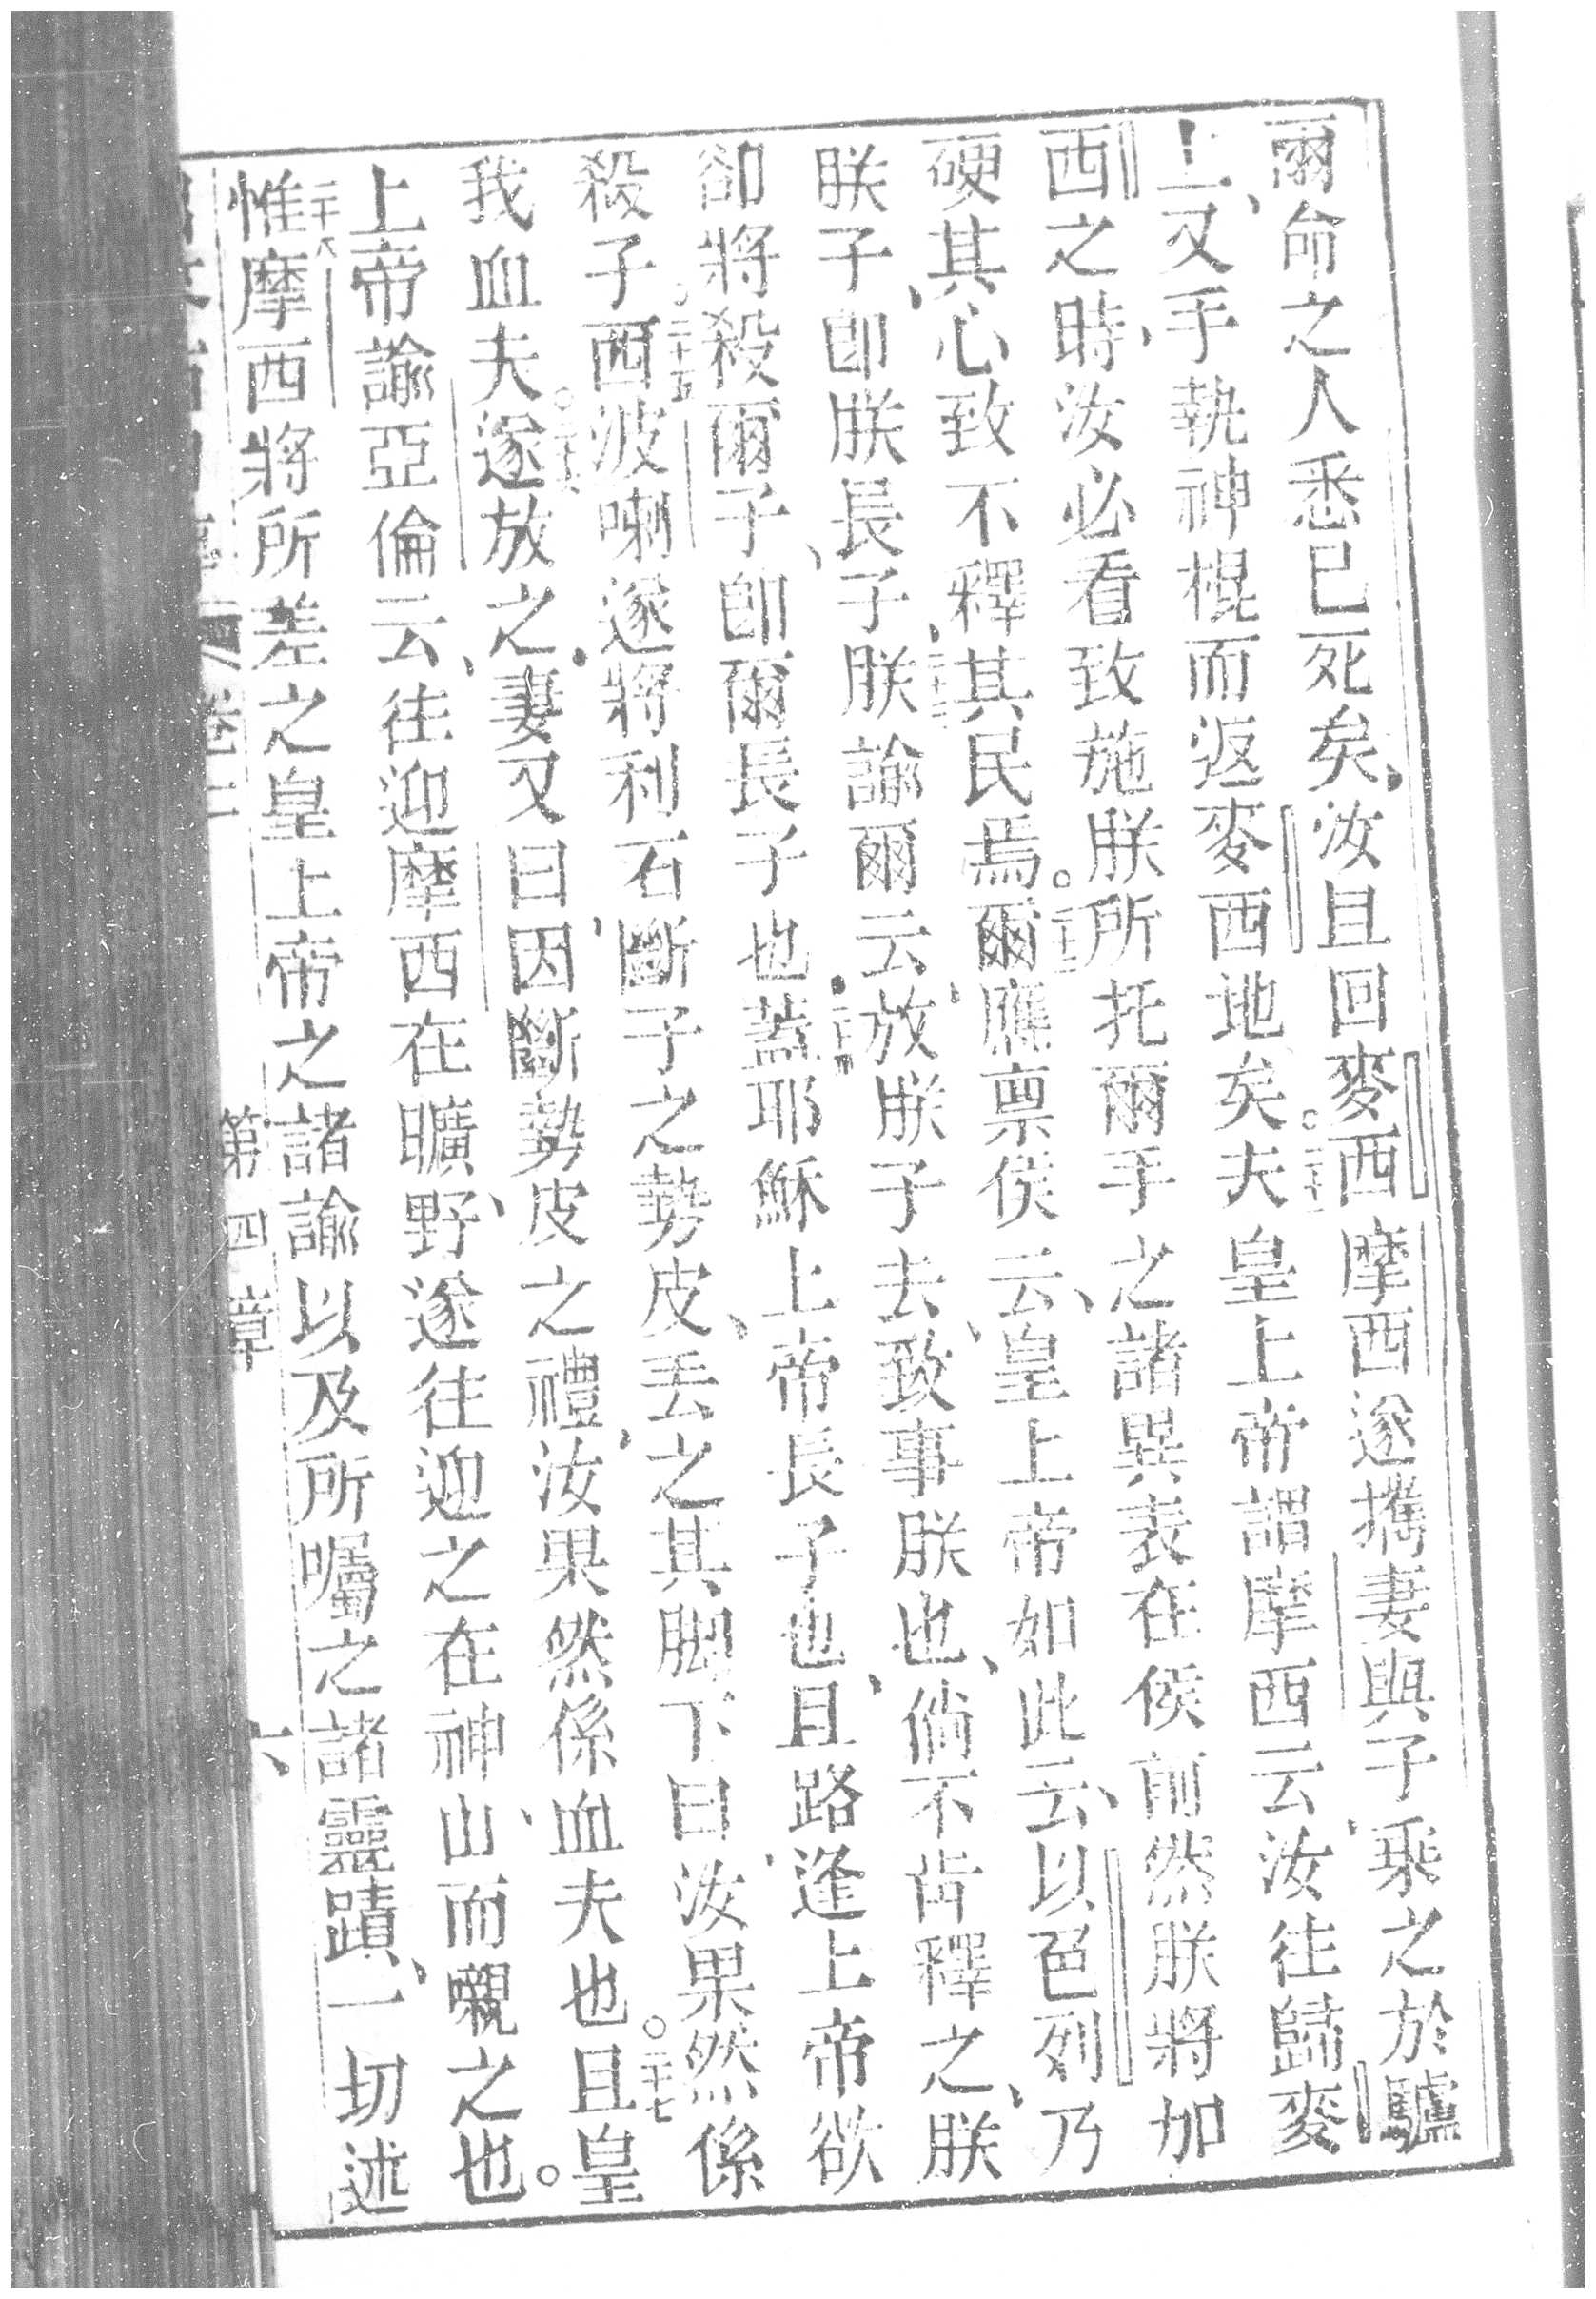 爾命之人悉已死矣、汝且回麥西摩西遂攜妻與子、乘之於驢
上、又手執神棍而返麥西地矣。二十一夫皇上帝謂摩西云汝往歸麥
西之時、汝必看致施朕所托爾手之諸異表在侯前然朕將加
硬其心、致不釋其民焉。二十二爾應禀侯云、皇上帝如此云、以色列乃
朕子、即朕長子、二十三朕諭爾云、放朕子去、致事朕也、倘不肯釋之、朕
卻將殺爾子、即爾長子也、二十四蓋耶穌上帝長子也、且路逢上帝欲
殺子、二十五西波喇遂將利石、斷子之勢皮、丟之其脚下曰、汝果然係
我血夫。二十六遂放之、妻又曰因斷勢皮之禮、汝果然係血夫也。二十七且皇
上帝諭亞倫云、往迎摩西在曠野、遂往迎之在神山、而嚫之也。
二十八惟摩西將所差之皇上帝之諸諭以及所囑之諸靈蹟、一切述
卷二 第四章 六